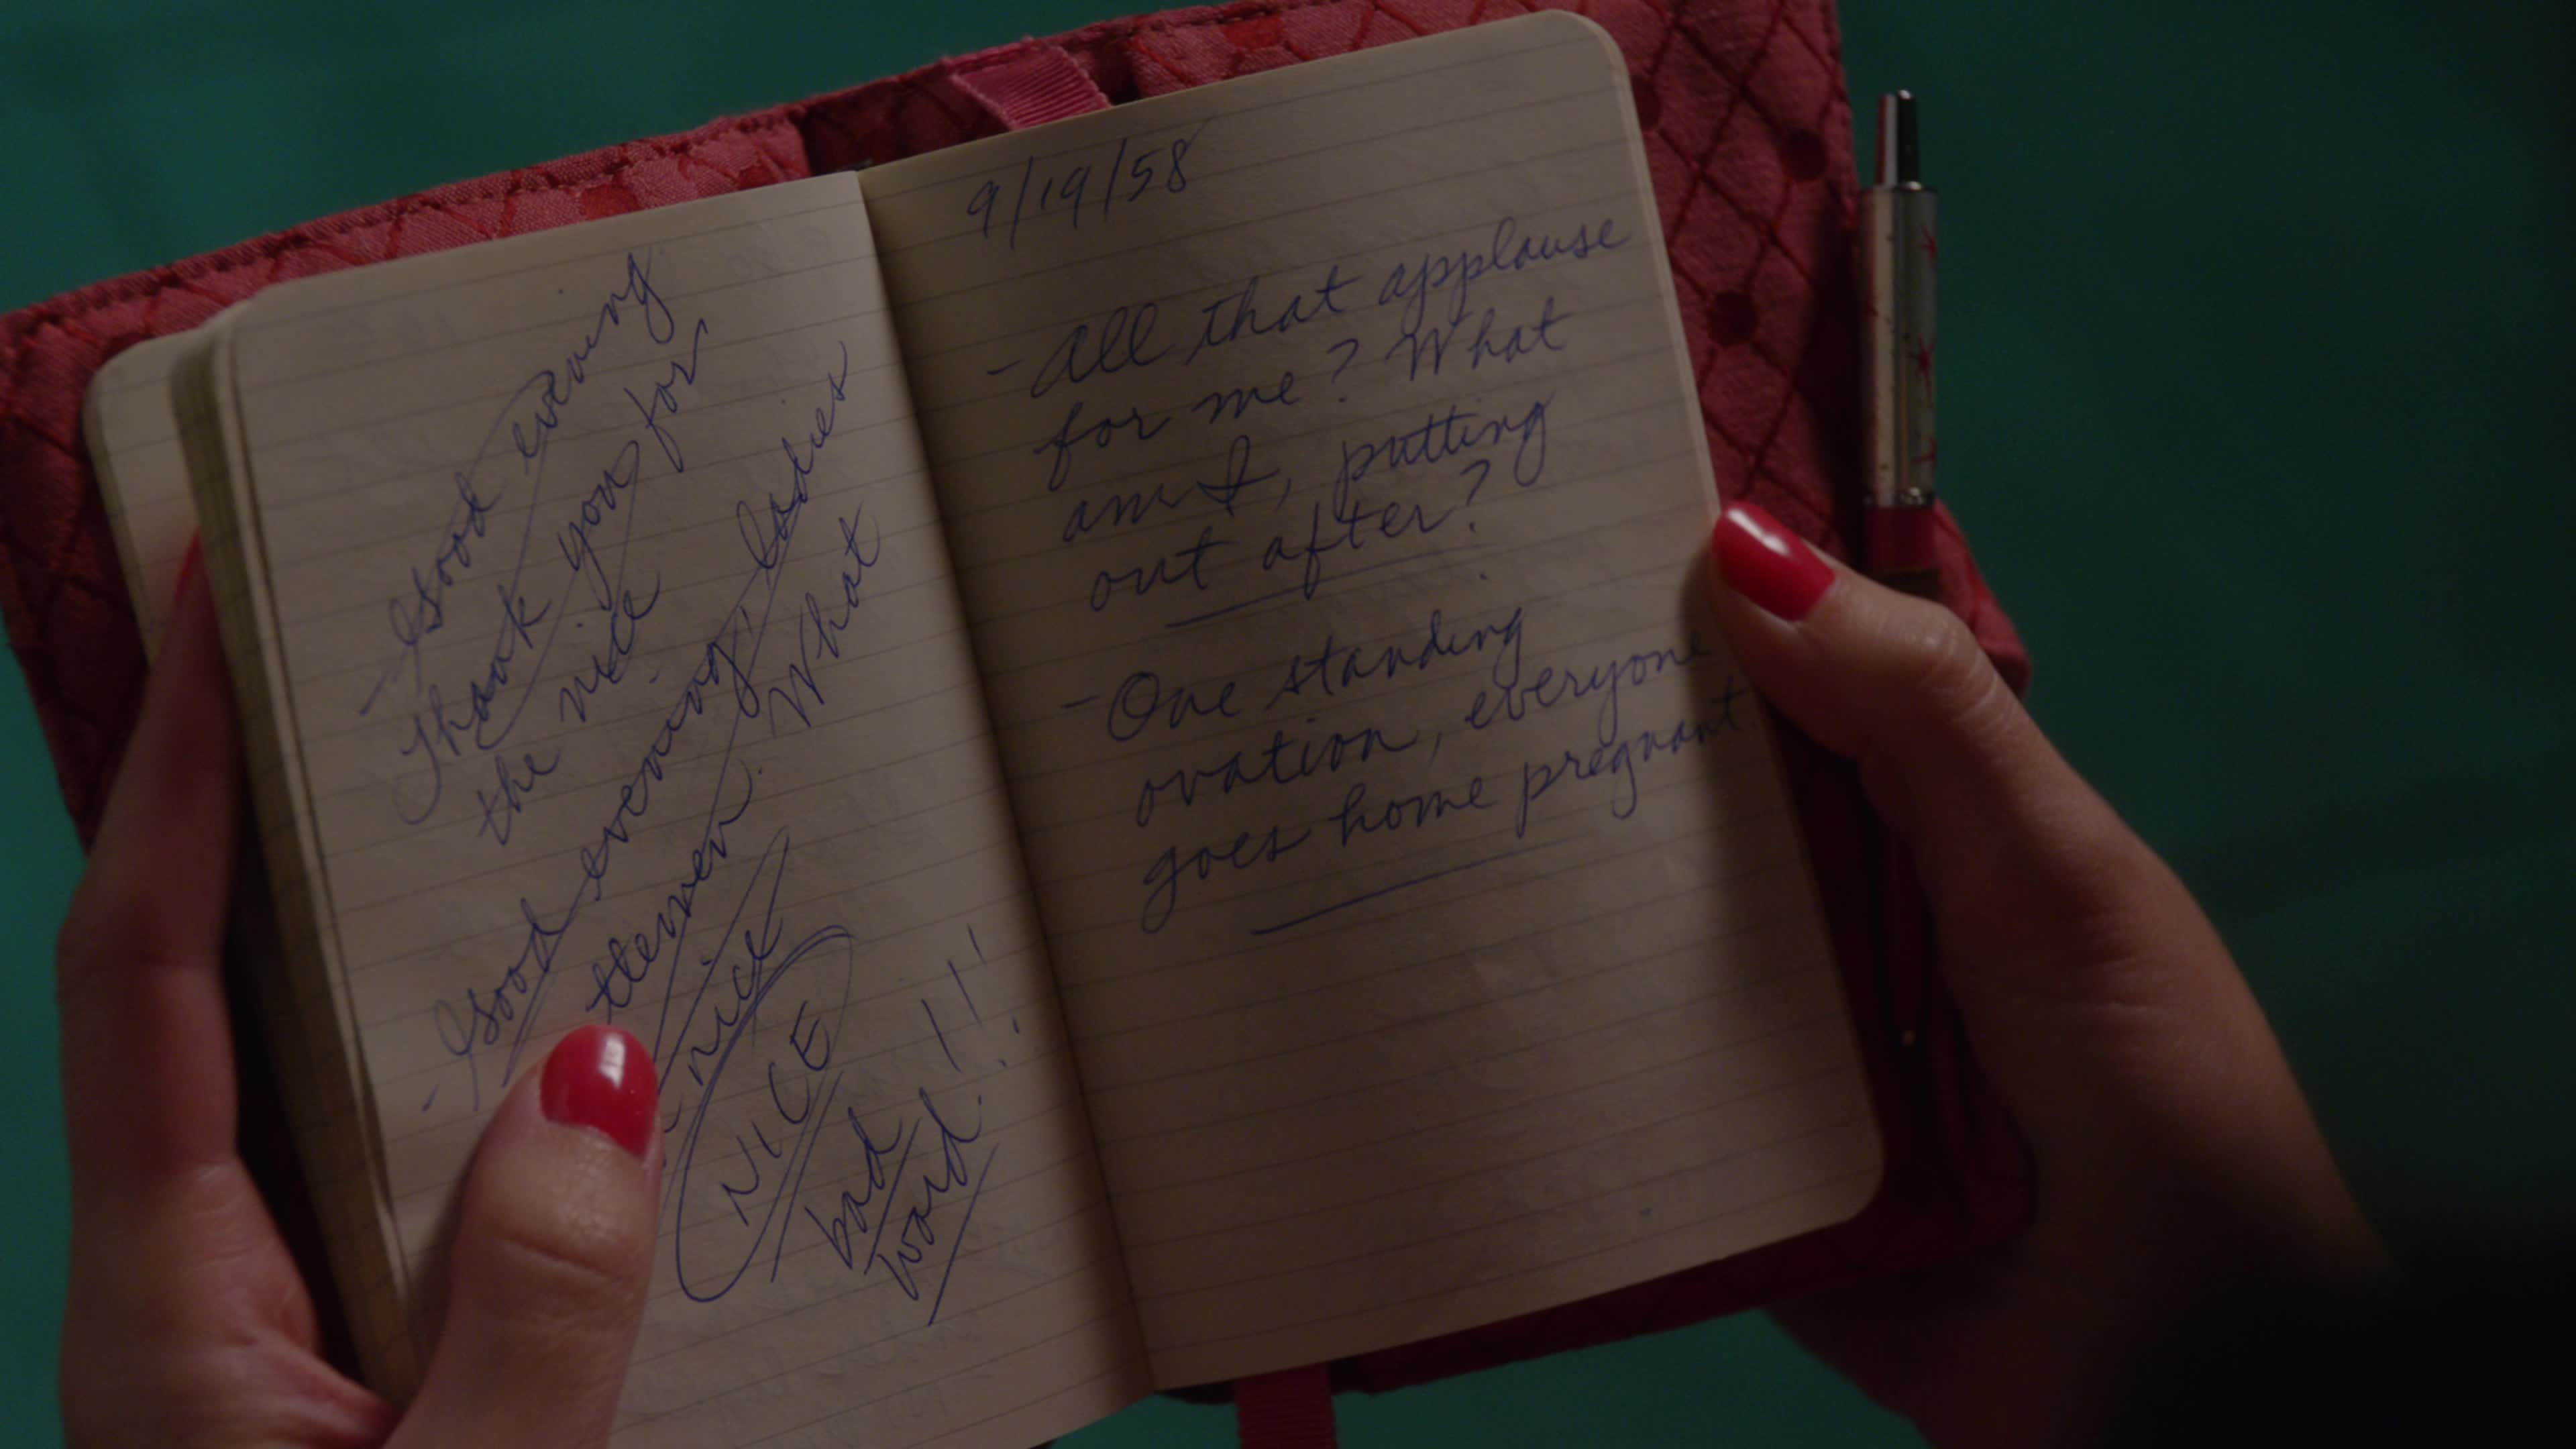 - Good evening
Thank you for
the nice
- Good evening, ladies
ttlemen. What
nice
NICE
bad !!
word!
9/19/58
- All that applause
for me? What
am I, putting
out after?
- One standing
ovation, everyone
goes home pregnant.